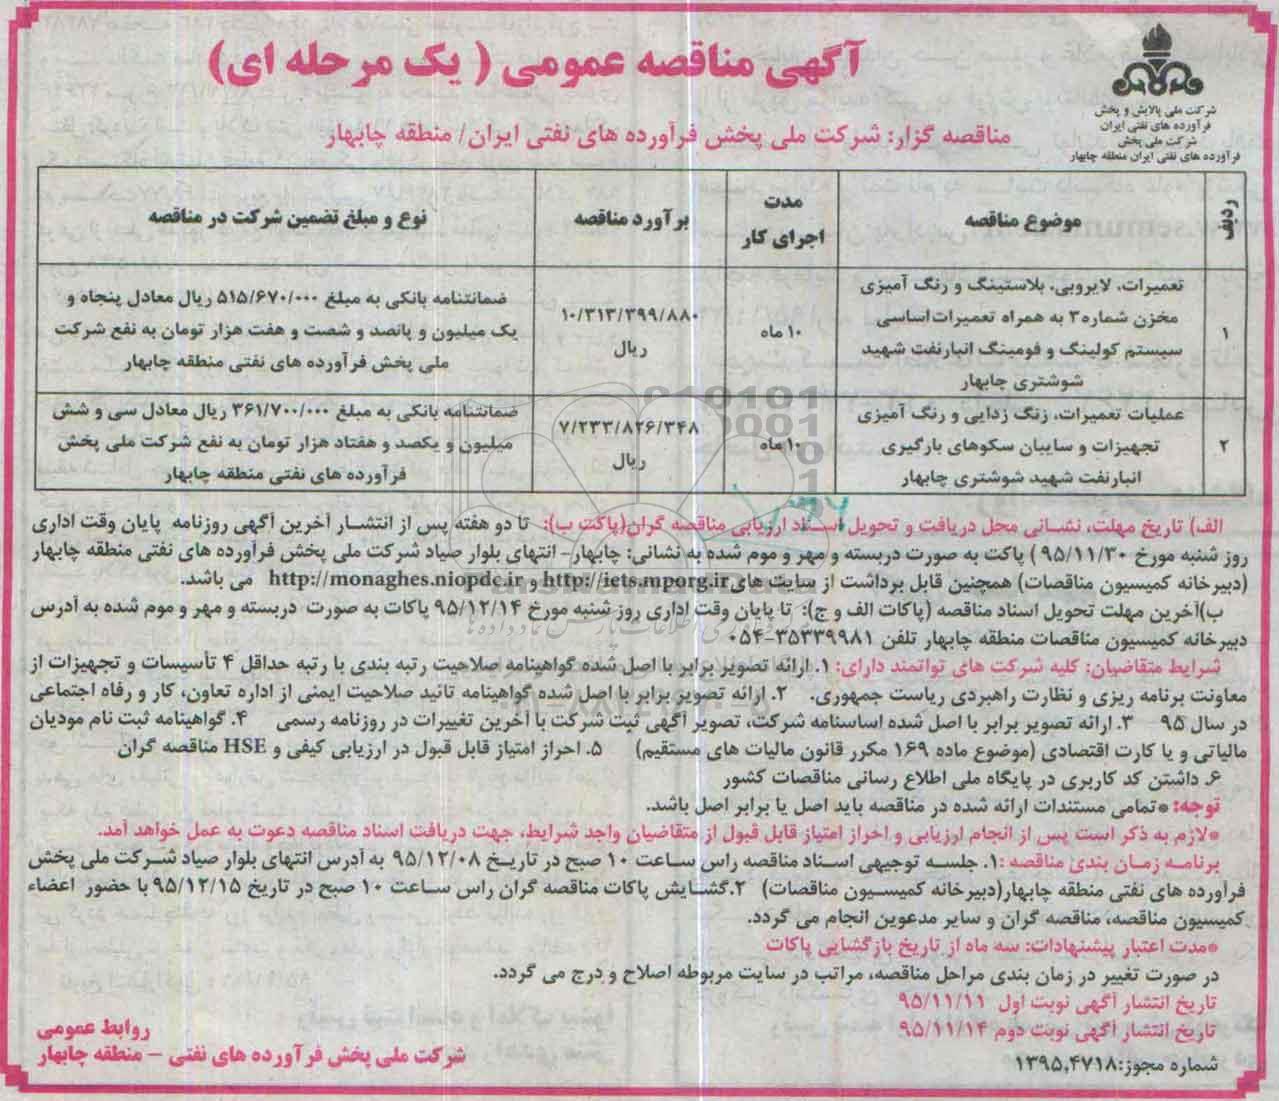 آگهی مناقصه عمومی ( یک مرحله ای)
شرکت ملی پالایش و پخش
فرآورده های نفتی ایران
شرکت ملی پخش
فرآورده های نفتی ایران منطقه چابهار
مناقصه گزار: شرکت ملی پخش فرآورده های نفتی ایران/ منطقه چابهار
ردیف موضوع مناقصه مدت اجرای کار برآورد مناقصه نوع و مبلغ تضمین شرکت در مناقصه
۱
تعمیرات، لایروبی، بلاستینگ و رنگ آمیزی
مخزن شماره۳ به همراه تعمیرات اساسی
سیستم کولینگ و فومینگ انبارنفت شهید
شوشتری چابهار
۱۰ ماه
۱۰/۳۱۳/۳۹۹/۸۸۰
ریال
ضمانتنامه بانکی به مبلغ ۵۱۵/۶۷۰/۰۰۰ ریال معادل پنجاه و
یک میلیون و پانصد و شصت و هفت هزار تومان به نفع شرکت
ملی پخش فرآورده های نفتی منطقه چابهار
۲
عملیات تعمیرات، زنگ زدایی و رنگ آمیزی
تجهیزات و سایبان سکوهای بارگیری
انبارنفت شهید شوشتری چابهار
۱۰ ماه
۷/۲۳۳/۸۲۶/۳۴۸
ریال
ضمانتنامه بانکی به مبلغ ۳۶۱/۷۰۰/۰۰۰ ریال معادل سی و شش
میلیون و یکصد و هفتاد هزار تومان به نفع شرکت ملی پخش
فرآورده های نفتی منطقه چابهار
الف) تاریخ مهلت، نشانی محل دریافت و تحویل اسناد ارزیابی مناقصه گران(پاکت ب): تا دو هفته پس از انتشار آخرین آگهی روزنامه پایان وقت اداری
روز شنبه مورخ ۹۵/۱۱/۳۰ ) پاکت به صورت دربسته و مهر و موم شده به نشانی: چابهار- انتهای بلوار صیاد شرکت ملی پخش فرآورده های نفتی منطقه چابهار
(دبیرخانه کمیسیون مناقصات) همچنین قابل برداشت از سایت های http://iets.mporg.ir و http://monaghes.niopdc.ir می باشد.
ب)آخرین مهلت تحویل اسناد مناقصه (پاکات الف و ج): تا پایان وقت اداری روز شنبه مورخ ۹۵/۱۲/۱۴ پاکات به صورت دربسته و مهر و موم شده به آدرس
دبیرخانه کمیسیون مناقصات منطقه چابهار تلفن ۳۵۳۳۹۹۸۱-۰۵۴
شرایط متقاضیان: کلیه شرکت های توانمند دارای: ۱. ارائه تصویر برابر با اصل شده گواهینامه صلاحیت رتبه بندی با رتبه حداقل ۴ تأسیسات و تجهیزات از
معاونت برنامه ریزی و نظارت راهبردی ریاست جمهوری. ۲. ارائه تصویر برابر با اصل شده گواهینامه تائید صلاحیت ایمنی از اداره تعاون، کار و رفاه اجتماعی
در سال ۹۵ ۳. ارائه تصویر برابر با اصل شده اساسنامه شرکت، تصویر آگهی ثبت شرکت با آخرین تغییرات در روزنامه رسمی ۴. گواهینامه ثبت نام مودیان
مالیاتی و یا کارت اقتصادی (موضوع ماده ۱۶۹ مکرر قانون مالیات های مستقیم) ۵. احراز امتیاز قابل قبول در ارزیابی کیفی و HSE مناقصه گران
۶. داشتن کد کاربری در پایگاه ملی اطلاع رسانی مناقصات کشور
توجه: *تمامی مستندات ارائه شده در مناقصه باید اصل یا برابر اصل باشد.
*لازم به ذکر است پس از انجام ارزیابی و احراز امتیاز قابل قبول از متقاضیان واجد شرایط، جهت دریافت اسناد مناقصه دعوت به عمل خواهد آمد.
برنامه زمان بندی مناقصه :۱. جلسه توجیهی اسناد مناقصه راس ساعت ۱۰ صبح در تاریخ ۹۵/۱۲/۰۸ به آدرس انتهای بلوار صیاد شرکت ملی پخش
فرآورده های نفتی منطقه چابهار(دبیرخانه کمیسیون مناقصات) ۲.گشایش پاکات مناقصه گران راس ساعت ۱۰ صبح در تاریخ ۹۵/۱۲/۱۵ با حضور اعضاء
کمیسیون مناقصه، مناقصه گران و سایر مدعوین انجام می گردد.
*مدت اعتبار پیشنهادات: سه ماه از تاریخ بازگشایی پاکات
در صورت تغییر در زمان بندی مراحل مناقصه، مراتب در سایت مربوطه اصلاح و درج می گردد.
تاریخ انتشار آگهی نوبت اول ۹۵/۱۱/۱۱
تاریخ انتشار آگهی نوبت دوم ۹۵/۱۱/۱۴
شماره مجوز:۱۳۹۵,۴۷۱۸
روابط عمومی
شرکت ملی پخش فرآورده های نفتی - منطقه چابهار